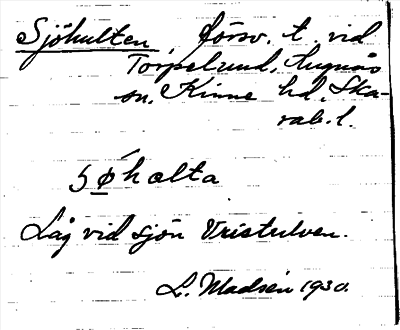 Sjöhulten, försv. t. vid
Torpelund, Lugnås
sn, Kinne hd, Ska-
rab. l.
sø̄́holta
Låg vid sjön Vristulven.
L. Madsén 1930.